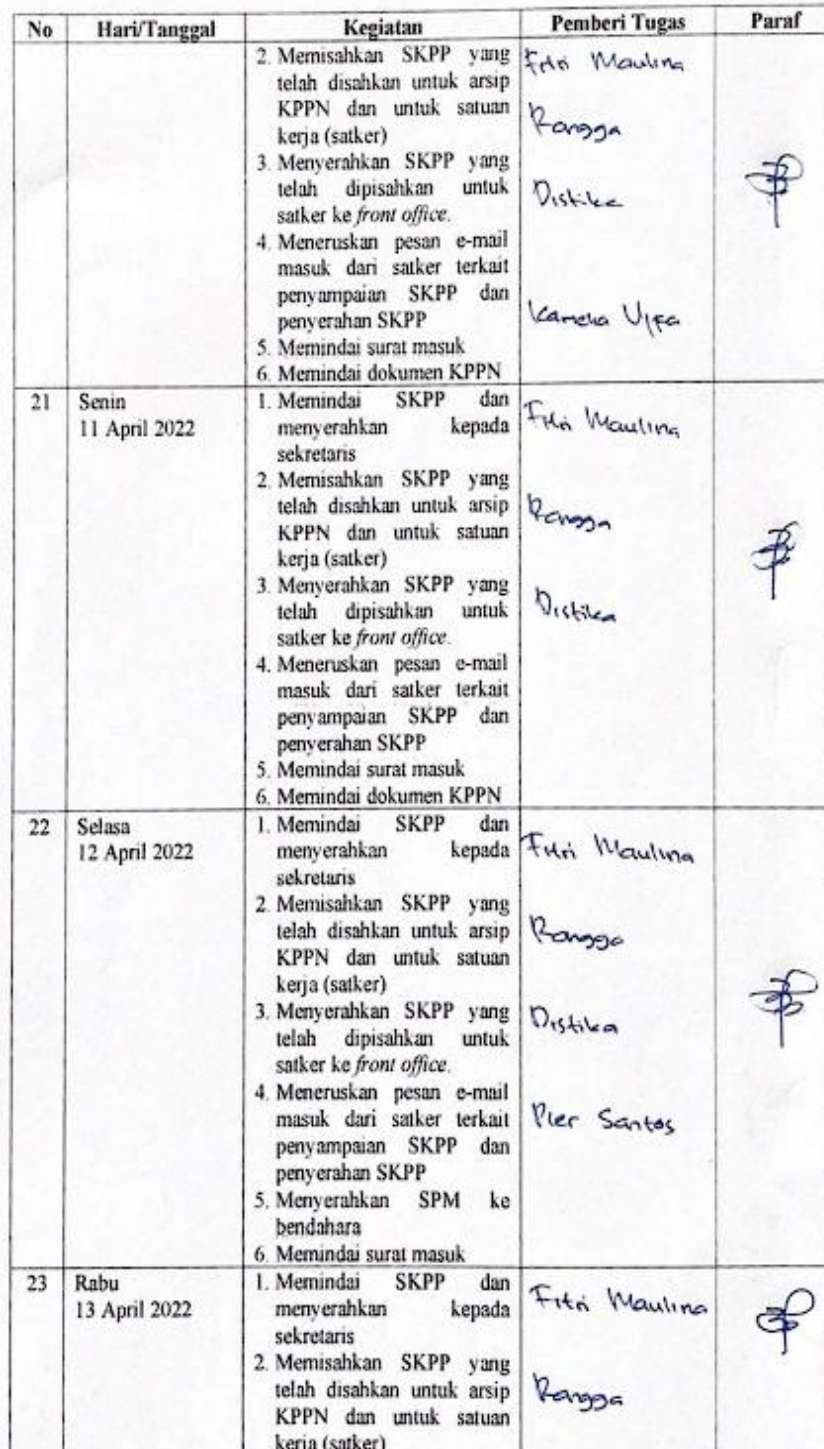 No Hari/Tanggal Kegiatan Pemberi Tugas Paraf
2. Memisahkan SKPP yang
telah disahkan untuk arsip
KPPN dan untuk satuan
kerja (satker)
3. Menyerahkan SKPP yang
telah dipisahkan untuk
satker ke front office.
4. Meneruskan pesan e-mail
masuk dari satker terkait
penyampaian SKPP dan
penyerahan SKPP
5. Memindai surat masuk
6. Memindai dokumen KPPN
Fitri Maulina
Rangga
Distika
Kamelia
21 Senin
11 April 2022
1. Memindai SKPP dan
menyerahkan kepada
sekretaris
2. Memisahkan SKPP yang
telah disahkan untuk arsip
KPPN dan untuk satuan
kerja (satker)
3. Menyerahkan SKPP yang
telah dipisahkan untuk
satker ke front office.
4. Meneruskan pesan e-mail
masuk dari satker terkait
penyampaian SKPP dan
penyerahan SKPP
5. Memindai surat masuk
6. Memindai dokumen KPPN
Fitri Maulina
Rangga
Distika
22 Selasa
12 April 2022
1. Memindai SKPP dan
menyerahkan kepada
sekretaris
2. Memisahkan SKPP yang
telah disahkan untuk arsip
KPPN dan untuk satuan
kerja (satker)
3. Menyerahkan SKPP yang
telah dipisahkan untuk
satker ke front office.
4. Meneruskan pesan e-mail
masuk dari satker terkait
penyampaian SKPP dan
penyerahan SKPP
5. Menyerahkan SPM ke
bendahara
6. Memindai surat masuk
Fitri Maulina
Rangga
Distika
Pier Santos
23 Rabu
13 April 2022
1. Memindai SKPP dan
menyerahkan kepada
sekretaris
2. Memisahkan SKPP yang
telah disahkan untuk arsip
KPPN dan untuk satuan
kerja (satker)
Fitri Maulina
Rangga